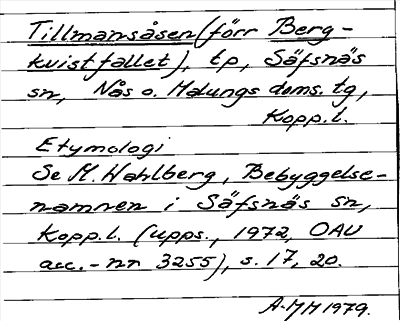 Tillmansåsen (förr Berg-
kvistfallet), tp, Säfsnäs
sn, Nås o. Malungs doms. tg,
Kopp.l.
Etymologi
Se M. Hahlberg, Bebyggelse-
namnen i Säfsnäs sn,
Kopp.l. (Upps., 1972, OAU
acc.-nr 3255), s. 17, 20.
A-MM 1979.